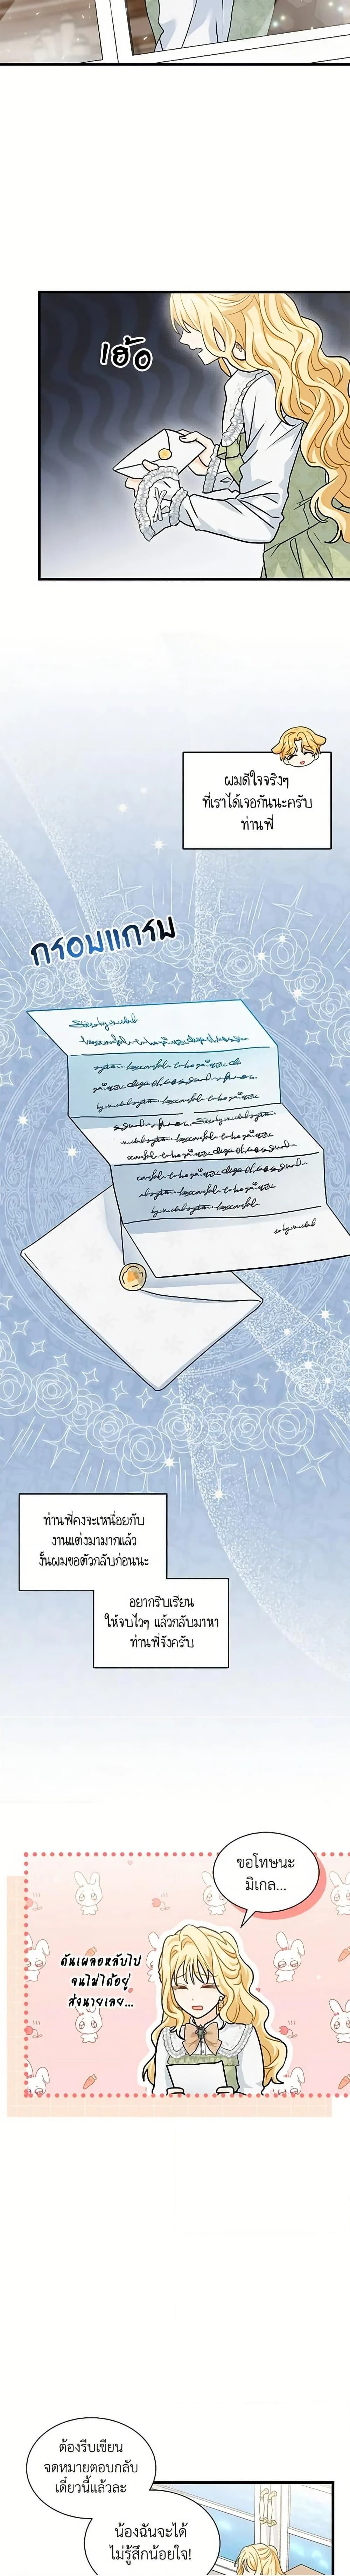 เฮ้อ
ผมดีใจจริงๆ
ที่เราได้เจอกันนะครับ
ท่านพี่
กรอบแกรบ
ท่านพี่คงจะเหนื่อยกับ
งานแต่งมามากแล้ว
งั้นผมขอตัวกลับก่อนนะ
อยากรีบเรียน
ให้จบไวๆ แล้วกลับมาหา
ท่านพี่จังครับ
ขอโทษนะ
มิเกล...
ดันเผลอหลับไป
จนไม่ได้อยู่
ส่งนายเลย...
ต้องรีบเขียน
จดหมายตอบกลับ
เดี๋ยวนี้แล้วละ
น้องฉันจะได้
ไม่รู้สึกน้อยใจ!